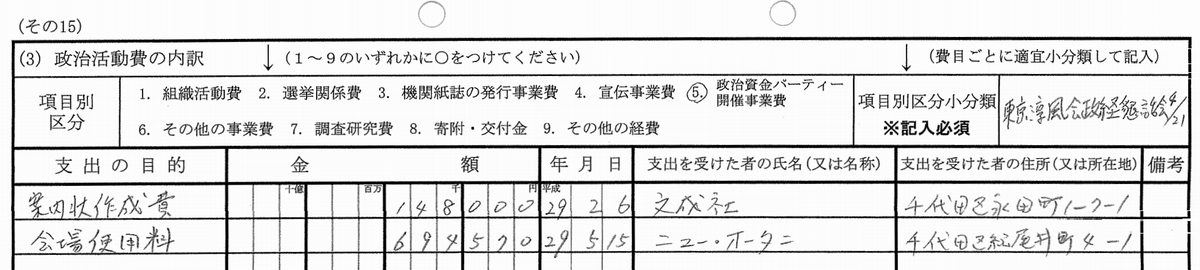 (その15)
(3) 政治活動費の内訳 ↓ (1～9のいずれかに○をつけてください) ↓ (費目ごとに適宜小分類して記入)
項目別区分 1. 組織活動費 2. 選挙関係費 3. 機関紙誌の発行事業費 4. 宣伝事業費 ⑤. 政治資金パーティー開催事業費 項目別区分小分類 ※記入必須 東京淳風会政経懇話会4/21
6. その他の事業費 7. 調査研究費 8. 寄附・交付金 9. その他の経費
支出の目的 金額 年月日 支出を受けた者の氏名(又は名称) 支出を受けた者の住所(又は所在地) 備考
十億 百万 千 円 平成
案内状作成費 148000 29 2 6 文成社 千代田区永田町1-7-1
会場使用料 694570 29 5 15 ニュー・オータニ 千代田区紀尾井町4-1